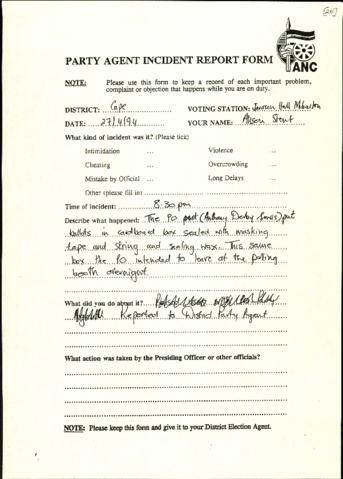 PARTY AGENT INCIDENT REPORT FORM
ANC
NOTE: Please use this form to keep a record of each important problem,
complaint or objection that happens while you are on duty.
DISTRICT: Cape VOTING STATION: Hall
DATE: 27/4/94 YOUR NAME: Alison Stent
What kind of incident was it? (Please tick)
Intimidation ... Violence ...
Cheating ... Overcrowding ...
Mistake by Official ... Long Delays ...
Other (please fill in)
Time of incident: 8.30 pm
Describe what happened: The PO (Anthony Derby) put
ballots in cardboard box sealed with masking
tape and string and sealing wax. This same
box the PO intended to leave at the polling
booth overnight.
What did you do about it?
Reported to District Party Agent
What action was taken by the Presiding Officer or other officials?
NOTE: Please keep this form and give it to your District Election Agent.